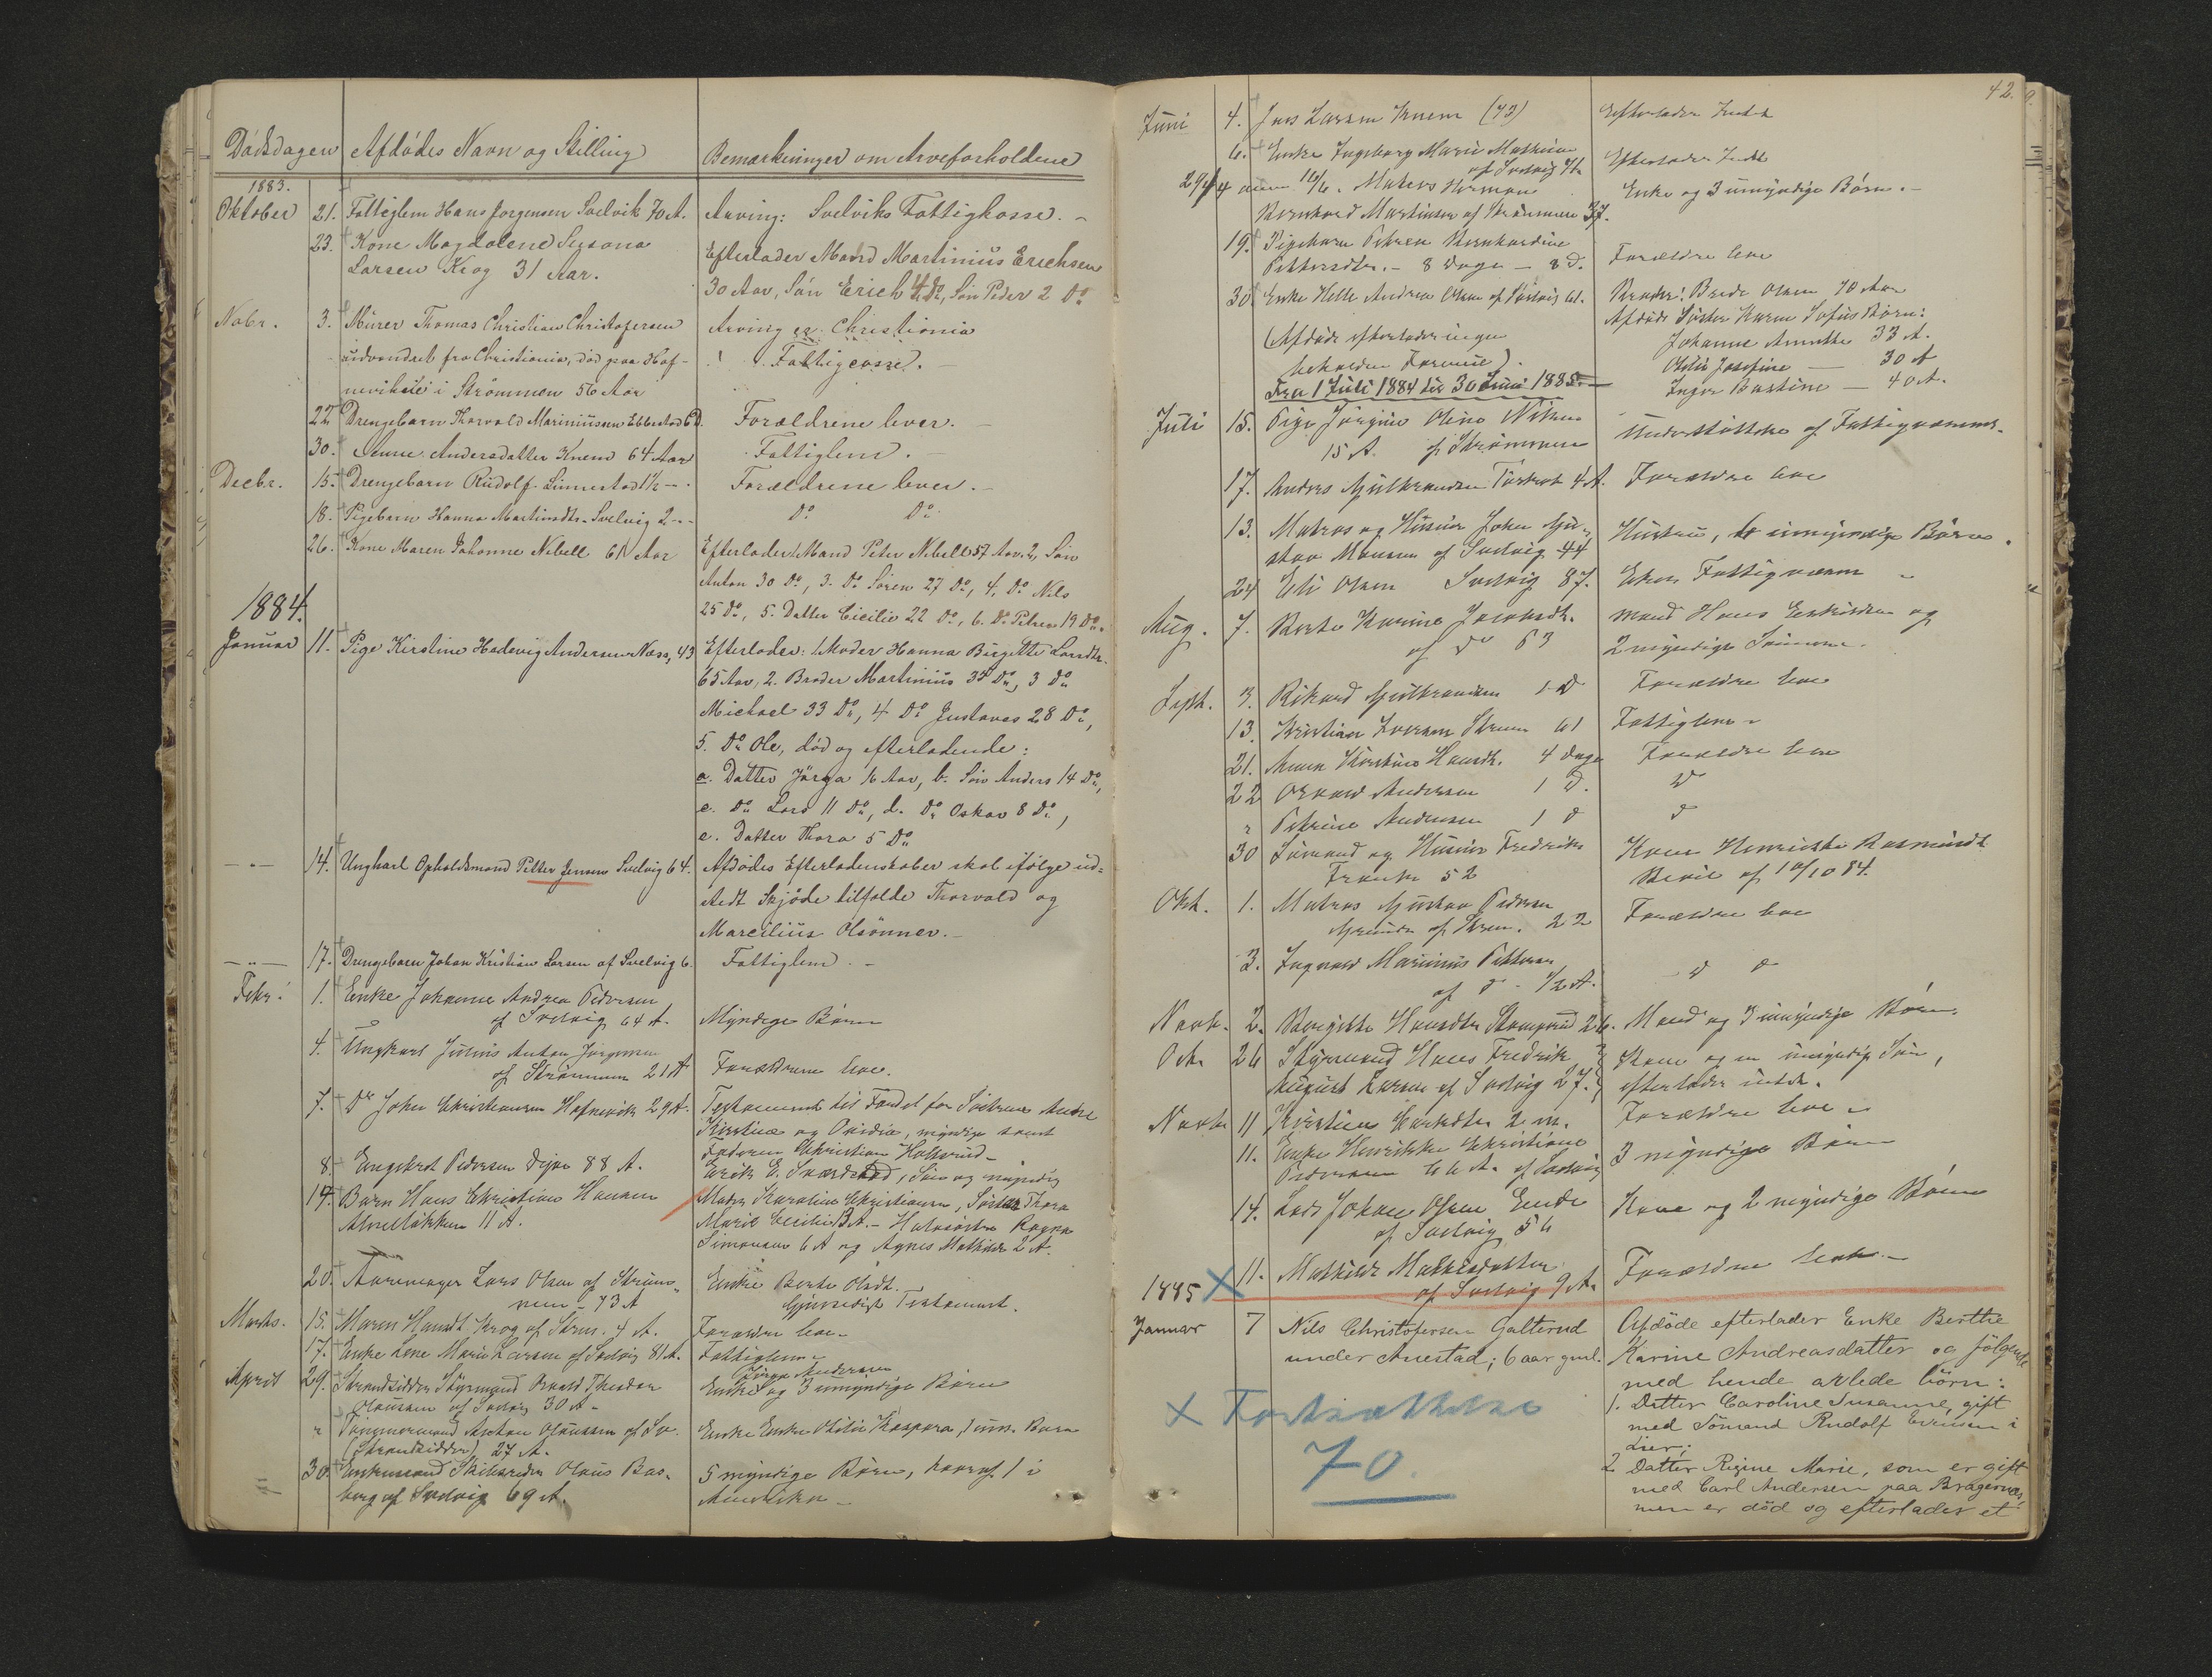 Dødsdagen Afdødes Navn og Stilling Bemærkninger om Arveforholdene
1883.
Oktober 21. Fattiglem Hans Jørgensen Svelvik 70 A. Arving: Svelviks Fattigkasse. -
23. Kone Magdalene
Larsen Krog 31 Aar.
Efterlader Mand Martinius Erichsen
30 Aar, Søn Erich 4 Do, Søn Peder 2 Do
Nobr. 3. Murer Thomas Christian Christofersen Arving er Christiania
udvandret fra Christiania, død paa Haf- Fattigcasse. -
i Strømmen 56 Aar
22 Drengebarn Thorvald Mariniussen Ebbestad 6 D. Forældrene lever. -
30. Anne Andersdatter Knem 64 Aar Fattiglem. -
Decbr. 15. Drengebarn Rudolf Linnestad 1½ - Forældrene lever. -
18. Pigebarn Hanna Martinsdtr. Svelvig 2 - Do Do
26. Kone Maren Johanne Nebell 61 Aar Efterlader 1. Mand Peter Nebell 57 Aar. 2, Søn
Anton 30 Do, 3. Do Søren 27 Do, 4. Do Nils
25 Do, 5. Datter Cicilie 22 Do, 6. Do Petrea 19 Do.
1884.
Januar 11. Pige Kirstine Hedevig Andersen Næss, 43 Efterlader: 1. Moder Hanna Birgitte Larsdtr.
65 Aar, 2. Broder Martinius 35 Do, 3 Do
Michael 33 Do, 4 Do Gustaves 28 Do,
5. Do Ole, død og efterladende:
a. Datter Jørga 16 Aar, b. Søn Anders 14 Do,
c. Do Lars 11 Do, d. Do Oskar 8 Do,
e. Datter Thora 5 Do
- " - 14. Ungkarl Opholdsmand Petter Jensen Svelvig 64. Afdødes Efterladenskaber skal ifølge ud-
stedt Skjøde tilfalde Thorvald og
Marcilius Olsønner. -
- " - 17. Drengebarn Johan Kristian Larsen af Svelvig 6. Fattiglem. -
Febr. 1. Enke Johanne Andrea Pedersen
af Svelvig 64 A. Myndige Børn
4. Ungkarl Julius Anton Jørgensen
af Strømmen 21 A Forældrene leve.
7. Do John Christiansen Hafnevik 29 A. Testament til Fordel for Søstrene
Kirstine og , myndige samt
Faderen Christian
8. Engebret Pedersen 88 A. Erik E. , Søn og myndig
14. Barn Hans Christian Hansen Moder Karoline Christiansen, Søster Thora
11 A. Marie Cecilie 13 A. - Halvsøstre Ragna
Simonsen 6 A og Agnes Mathilde 2 A.
20. Lars Olsen af Strøm-
men - 73 A Enke Berte Olsdt.
Gjensidigt Testament.
Marts. 15. Maren Hansdt. Krog af Strm. 4 A. Forældre leve -
17. Enke Lene Marie Larsen af Svelvig 81 A. Fattiglem -
April 29. Strandsidder Styrmand Theodor Enke og 3 umyndige Børn
Olaussen af Svelvig 30 A -
" Tømmermand Anton Olaussen af Sv. Enke Otilie Kaspara, 1 um. Barn
(Strandsidder) 27 A.
30. Enkemand Skibsreder Olaus Bas-
berg af Svelvig 69 A. 5 myndige Børn, hvoraf 1 i
Amerika -
42.
Juni 4. Jens Larsen Knem (73) Efterlader Intet
6. Enke Ingeborg Marie Mathisen
af Svelvig Efterlader Intet
29/4 16/6. Matros Herman Enke og 3 umyndige Børn. -
Bernhard Martinsen af Strømmen 37.
19. Pigebarn Petrea Bernhardine
Pettersdtr. - 8 Dage - 8 D. Forældre leve
30 Enke Helle Andrea Olsen af Svelvig 61. Broder: Brede Olsen 70 Aar
Afdøde Søster Karen Sofies Børn:
(Afdøde efterlader ingen Johanne Annette 33 A.
beholden Formue). Otilie Josefine - 30 A
Fra 1 Juli 1884 til 30 Juni 1885. - Inger Bastine - 40 A.
Juli 15. Pige Jørgine Oline Nilsen
15 A. af Strømmen Understøttelse af Fattigvæsenet.
17. Anders Gulbrandsen 4 A. Forældre leve
13. Matros og Huseier Johan Gu-
stav af Svelvig 44 Hustru, umyndige Børn.
24 Eli Olsen Svelvig 87. Fattigvæsen "
Aug. 7. Berte Karine Jacobsdt. Mand Hans og
af Do 63 2 myndige Sønner.
Sept. 3. Rikard Gulbrandsen 1 D Forældre leve
13. Kristian Iversen Strøm 61 Fattiglem -
21. Anna Kirstine Hansdt. 4 Dage Forældre leve
22 Oskar Andersen 1 D. D
" Petrine Andersen 1 D D
30 Sømand og Huseier Fredrik
Franke 52 Kone Henrikke Rasmusdt
Bevil. af 10/10 84.
Okt. 1. Matros Gustav Pedersen
af Strøm. 22 Forældre leve
3. Ingvald Marinius Pettersen
af D - 1/2 A. D D
Novb. 2. Bergitte Hansdtr 26. Mand og 3 umyndige Børn.
Octr 26 Styrmand Hans Fredrik Kone og en umyndig Søn,
August Larsen af Svelvig 27. efterlader intet.
Novbr 11 Kirstine 2 m. Forældre leve -
11. Enke Henrikke Christiane
Pedersen 66 A. af Svelvig 3 myndige Børn
14. Lods Johan Olsen Ende
af Svelvig 56 Kone og 2 myndige Børn
11. Mathilde Mathisdatter
af Svelvig 9 A. Forældre leve. -
1885 X
Januar 7 Nils Christofersen Galterud Afdøde efterlader Enke Berthe
under Anestad; 6 aar gml. Karine Andreasdatter og følgende
med hende avlede børn:
1. Datter Caroline Susanne, gift
med Sømand Rudolf Evensen i
Lier;
2 Datter Regine Marie, som er gift
med Carl Andersen paa Bragernæs,
men er død og efterlader et
X Fortsættelse
70.